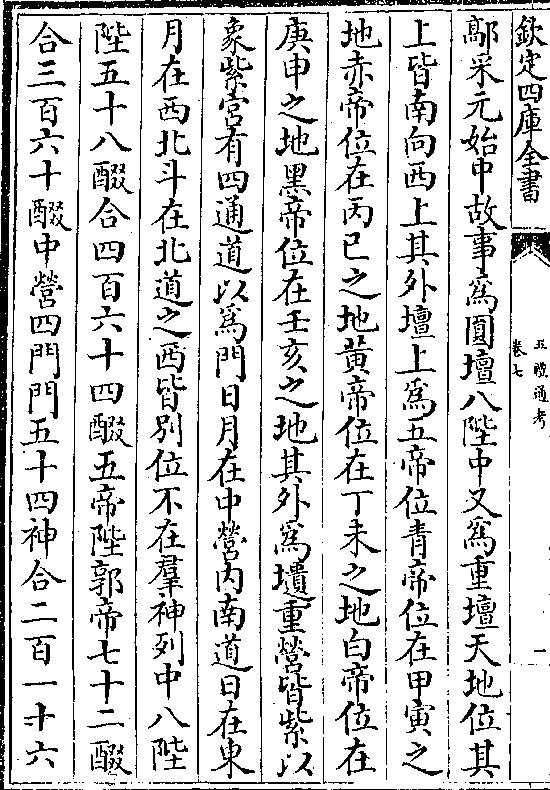 欽定四庫全書
五禮通考
卷七
一
鄗采元始中故事爲圓壇八陛中又爲重壇天地位其
上皆南向西上其外壇上爲五帝位青帝位在甲寅之
地赤帝位在丙巳之地黃帝位在丁未之地白帝位在
庚申之地黑帝位在壬亥之地其外爲壝重營皆紫以
象紫宫有四通道以爲門日月在中營内南道日在東
月在西北斗在北道之西皆别位不在羣神列中八陛
陛五十八醊合四百六十四醊五帝陛郭帝七十二醊
合三百六十醊中營四門門五十四神合二百一十六